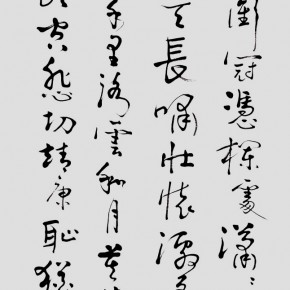 衝冠憑欄處瀟々
天長嘯壯懷激
千里路雲和月莫
空悲切靖康恥猶